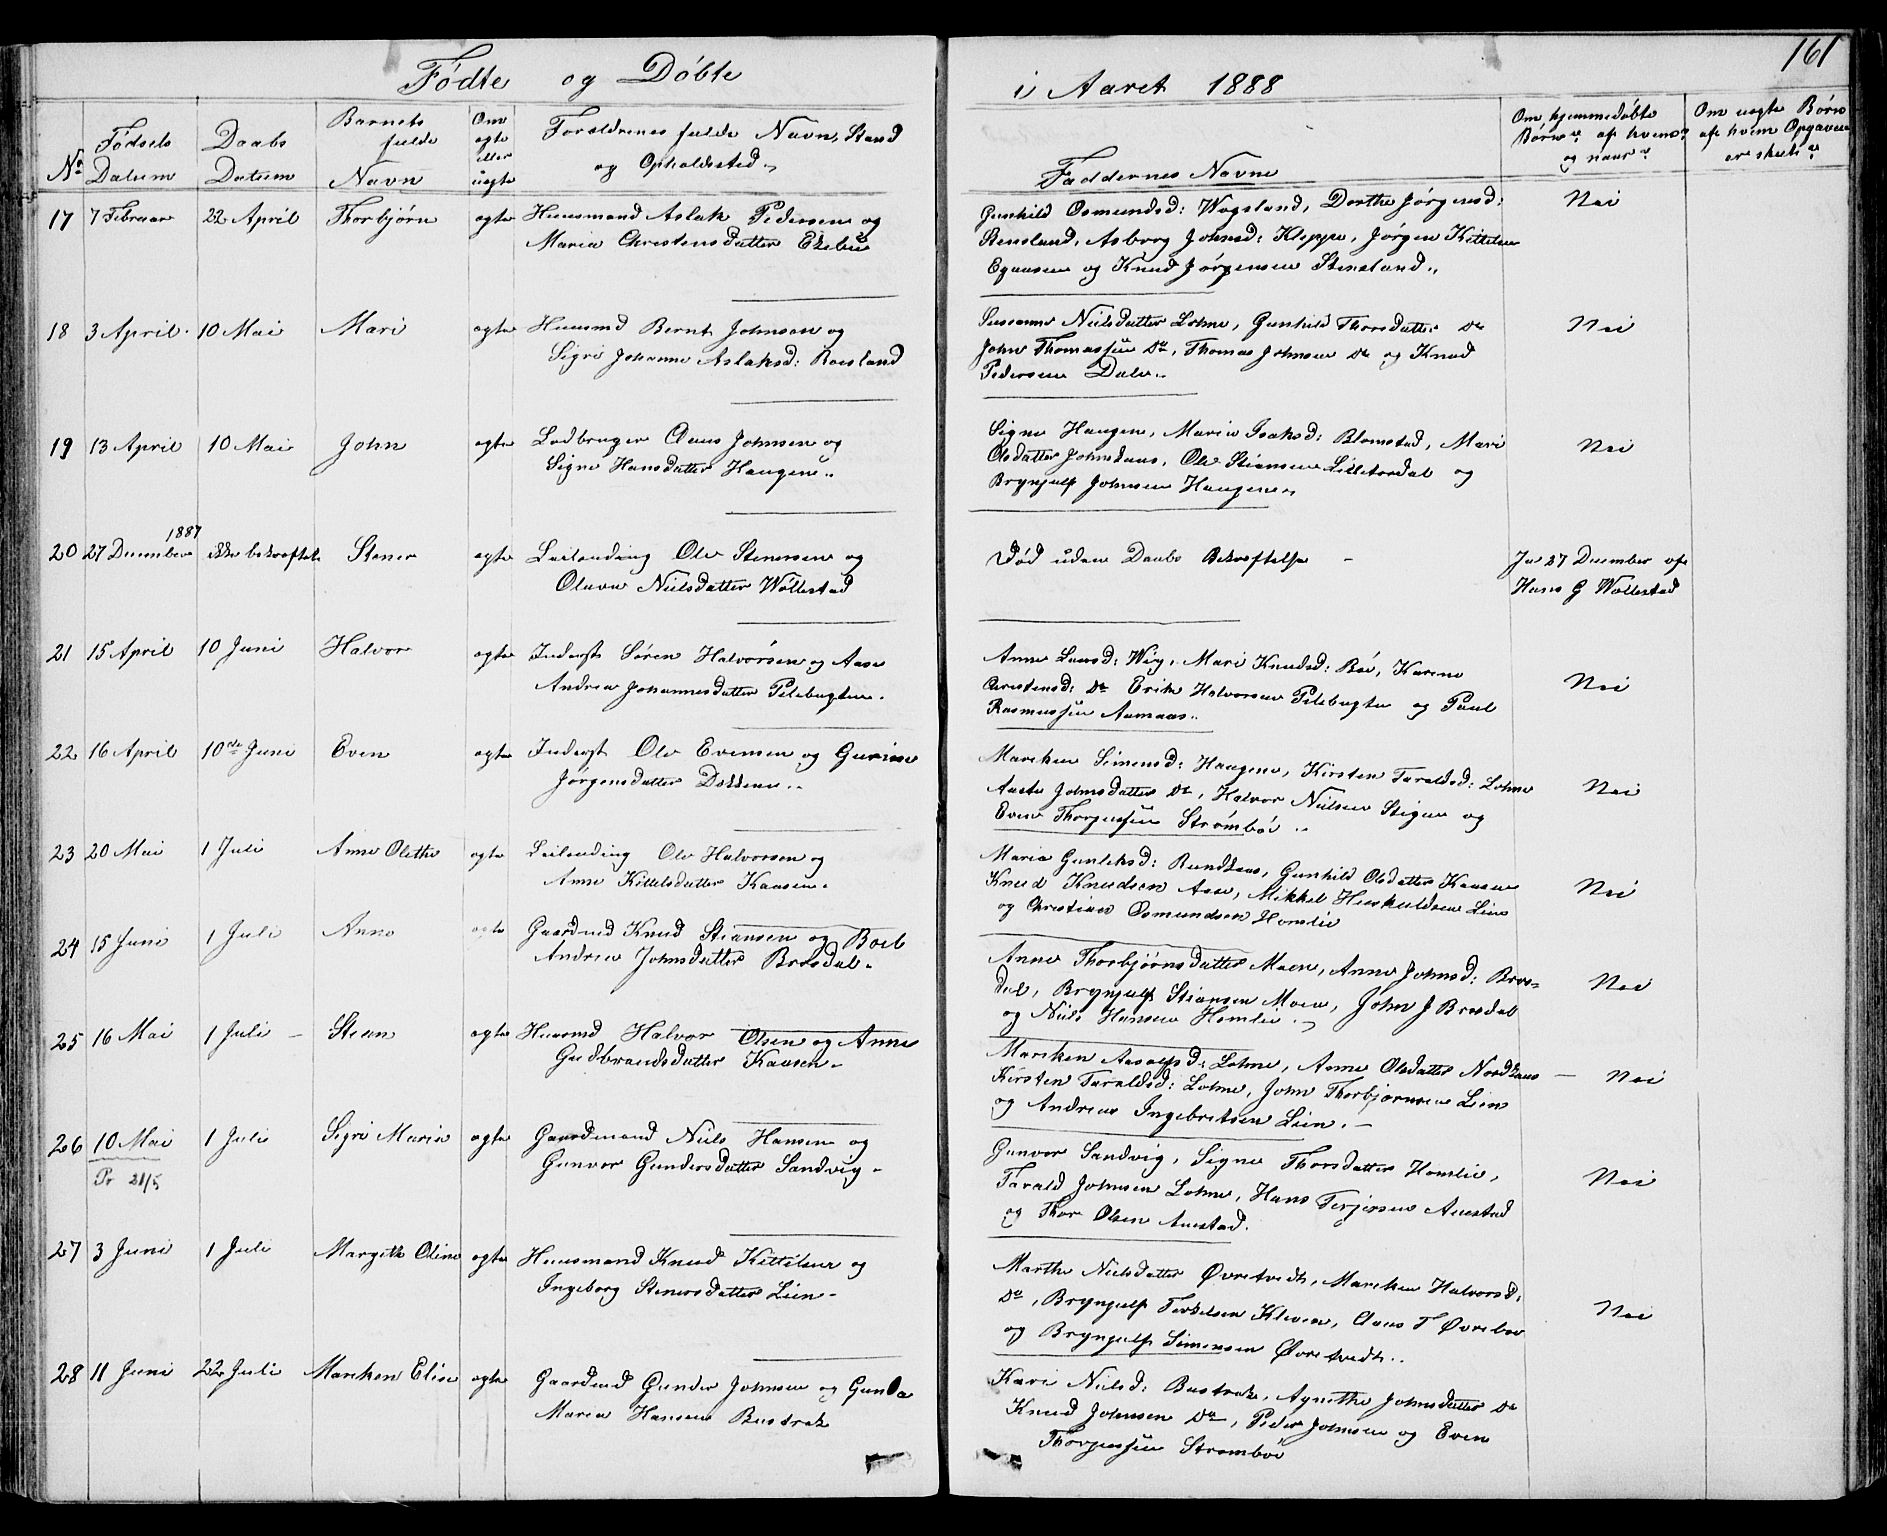 161
Fødte og Døbte i Aaret 1888
No
Fødsels Datum
Daabs Datum
Barnets fulde Navn
Om ægte eller uægte
Forældrenes fulde Navn, Stand og Opholdssted
Faddernes Navne
Om hjemmedøbte Børn af hvem? og naar?
Om uægte Børn af hvem Opgaven er skeet
17 7 Februar 22 April Thorbjørn ægte Huusmand Aslak Pedersen og
Maria Christensdatter
Gunhild Osmundsd: Wogsland, Dorthe Jørgensd:
Stensland, Asborg Johnsd: Kleppe, Jørgen Kittelsen
og Knud Jørgensen Stensland
Nei
18 3 April 10 Mai Mari ægte Huusmd Bernt Johnsen og
Sigri Johanne Aslaksd: Roesland
Susanne Nielsdatter Lohne, Gunhild Thorsdatter Do
John Thomassen Do, Thomas Johnsen Do og Knud
Pedersen Dale
Nei
19 13 April 10 Mai John ægte Lodbruger Claus Johnsen og
Signe Hansdatter Haugene
Signe Haugene, Marie Isaksd: Blomstad, Mari
Olsdatter Johnskaas, Ole Stiansen Lilletordal og
Brynjulf Johnsen Haugene
Nei
20 27 December 1887 ikke bekræftet Stener ægte Leilending Ole Stenersen og
Olava Nielsdatter Wøllestad
Død uden Daabs Bekræftelse
Ja 27 December af
Hans G Wøllestad
21 15 April 10 Juni Halvor ægte Inderst Søren Halvorsen og Aase
Andrea Johannesdatter Pilebugten
Anne Larsd: Wig, Mari Knudsd: Bøe, Karine
Christensd: Do Erik Halvorsen Pilebugten og Paul
Rasmussen Aamaas
Nei
22 16 April 10de Juni Even ægte Inderst Ole Evensen og Gurine
Jørgensdatter Dokken
Mareken Simensd: Haugene, Kirsten Taraldsd: Lohne
Aaste Johnsdatter Do, Halvor Nielsen Stigen og
Even Thorjussen Strømbøe
Nei
23 20 Mai 1 Juli Anne Olethe ægte Leilending Ole Halvorsen og
Anne Kittelsdatter Kaasen
Maria Gunleksd: Rundkaas, Gunhild Olsdatter Kaasen
Knud Knudsen Aase, Mikkel Huskuldsen Lien
og Christian Osmundsen Homlie
Nei
24 15 Juni 1 Juli Anne ægte Gaardmd Knud Stiansen og Boel
Andrea Johnsdatter Brosdal
Anne Thorbjørnsdatter Moen, Anne Johnsd: Bros-
dal, Brynjulf Stiansen Moen, John J Brosdal
og Niels Hansen Homlie
Nei
25 16 Mai 1 Juli Stean ægte Huusmd Halvor Olsen og Anne
Gudbrandsdatter Kaasen
Mareken Aasolfsd: Lohne, Anne Olsdatter Nordkaas
Kirsten Taraldsd: Lohne, John Thorbjørnsen Lien
og Andreas Ingebretsen Lien
Nei
26 10 Mai 1 Juli Sigri Marie ægte Gaardmand Niels Hansen og
Pr 21/5 Gunvor Gundersdatter Sandvig
Gunvor Sandvig, Signe Thorsdatter Homlie,
Tarald Johnsen Lohne, Hans Terjersen Auestad
og Thor Olsen Auestad.
Nei
27 3 Juni 1 Juli Margith Oline ægte Huusmand Knud Kittilsen og
Ingeborg Stenersdatter Lien
Marthe Nielsdatter Øvretvedt, Mareken Halvorsd:
Do, Brynjulf Terkelsen Kleven, Claus T Øvrebøe
og Brynjulf Simensen Øvretvedt
Nei
28 11 Juni 22 Juli Mareken Elise ægte Gaardmd Gunder Johnsen og Gunda
Maria Hansen Bustrak
Kari Nielsd: Bustrak, Agnethe Johnsdatter Do
Knud Johnsen Do, Peder Johnsen og Even
Thorjussen Strømbøe